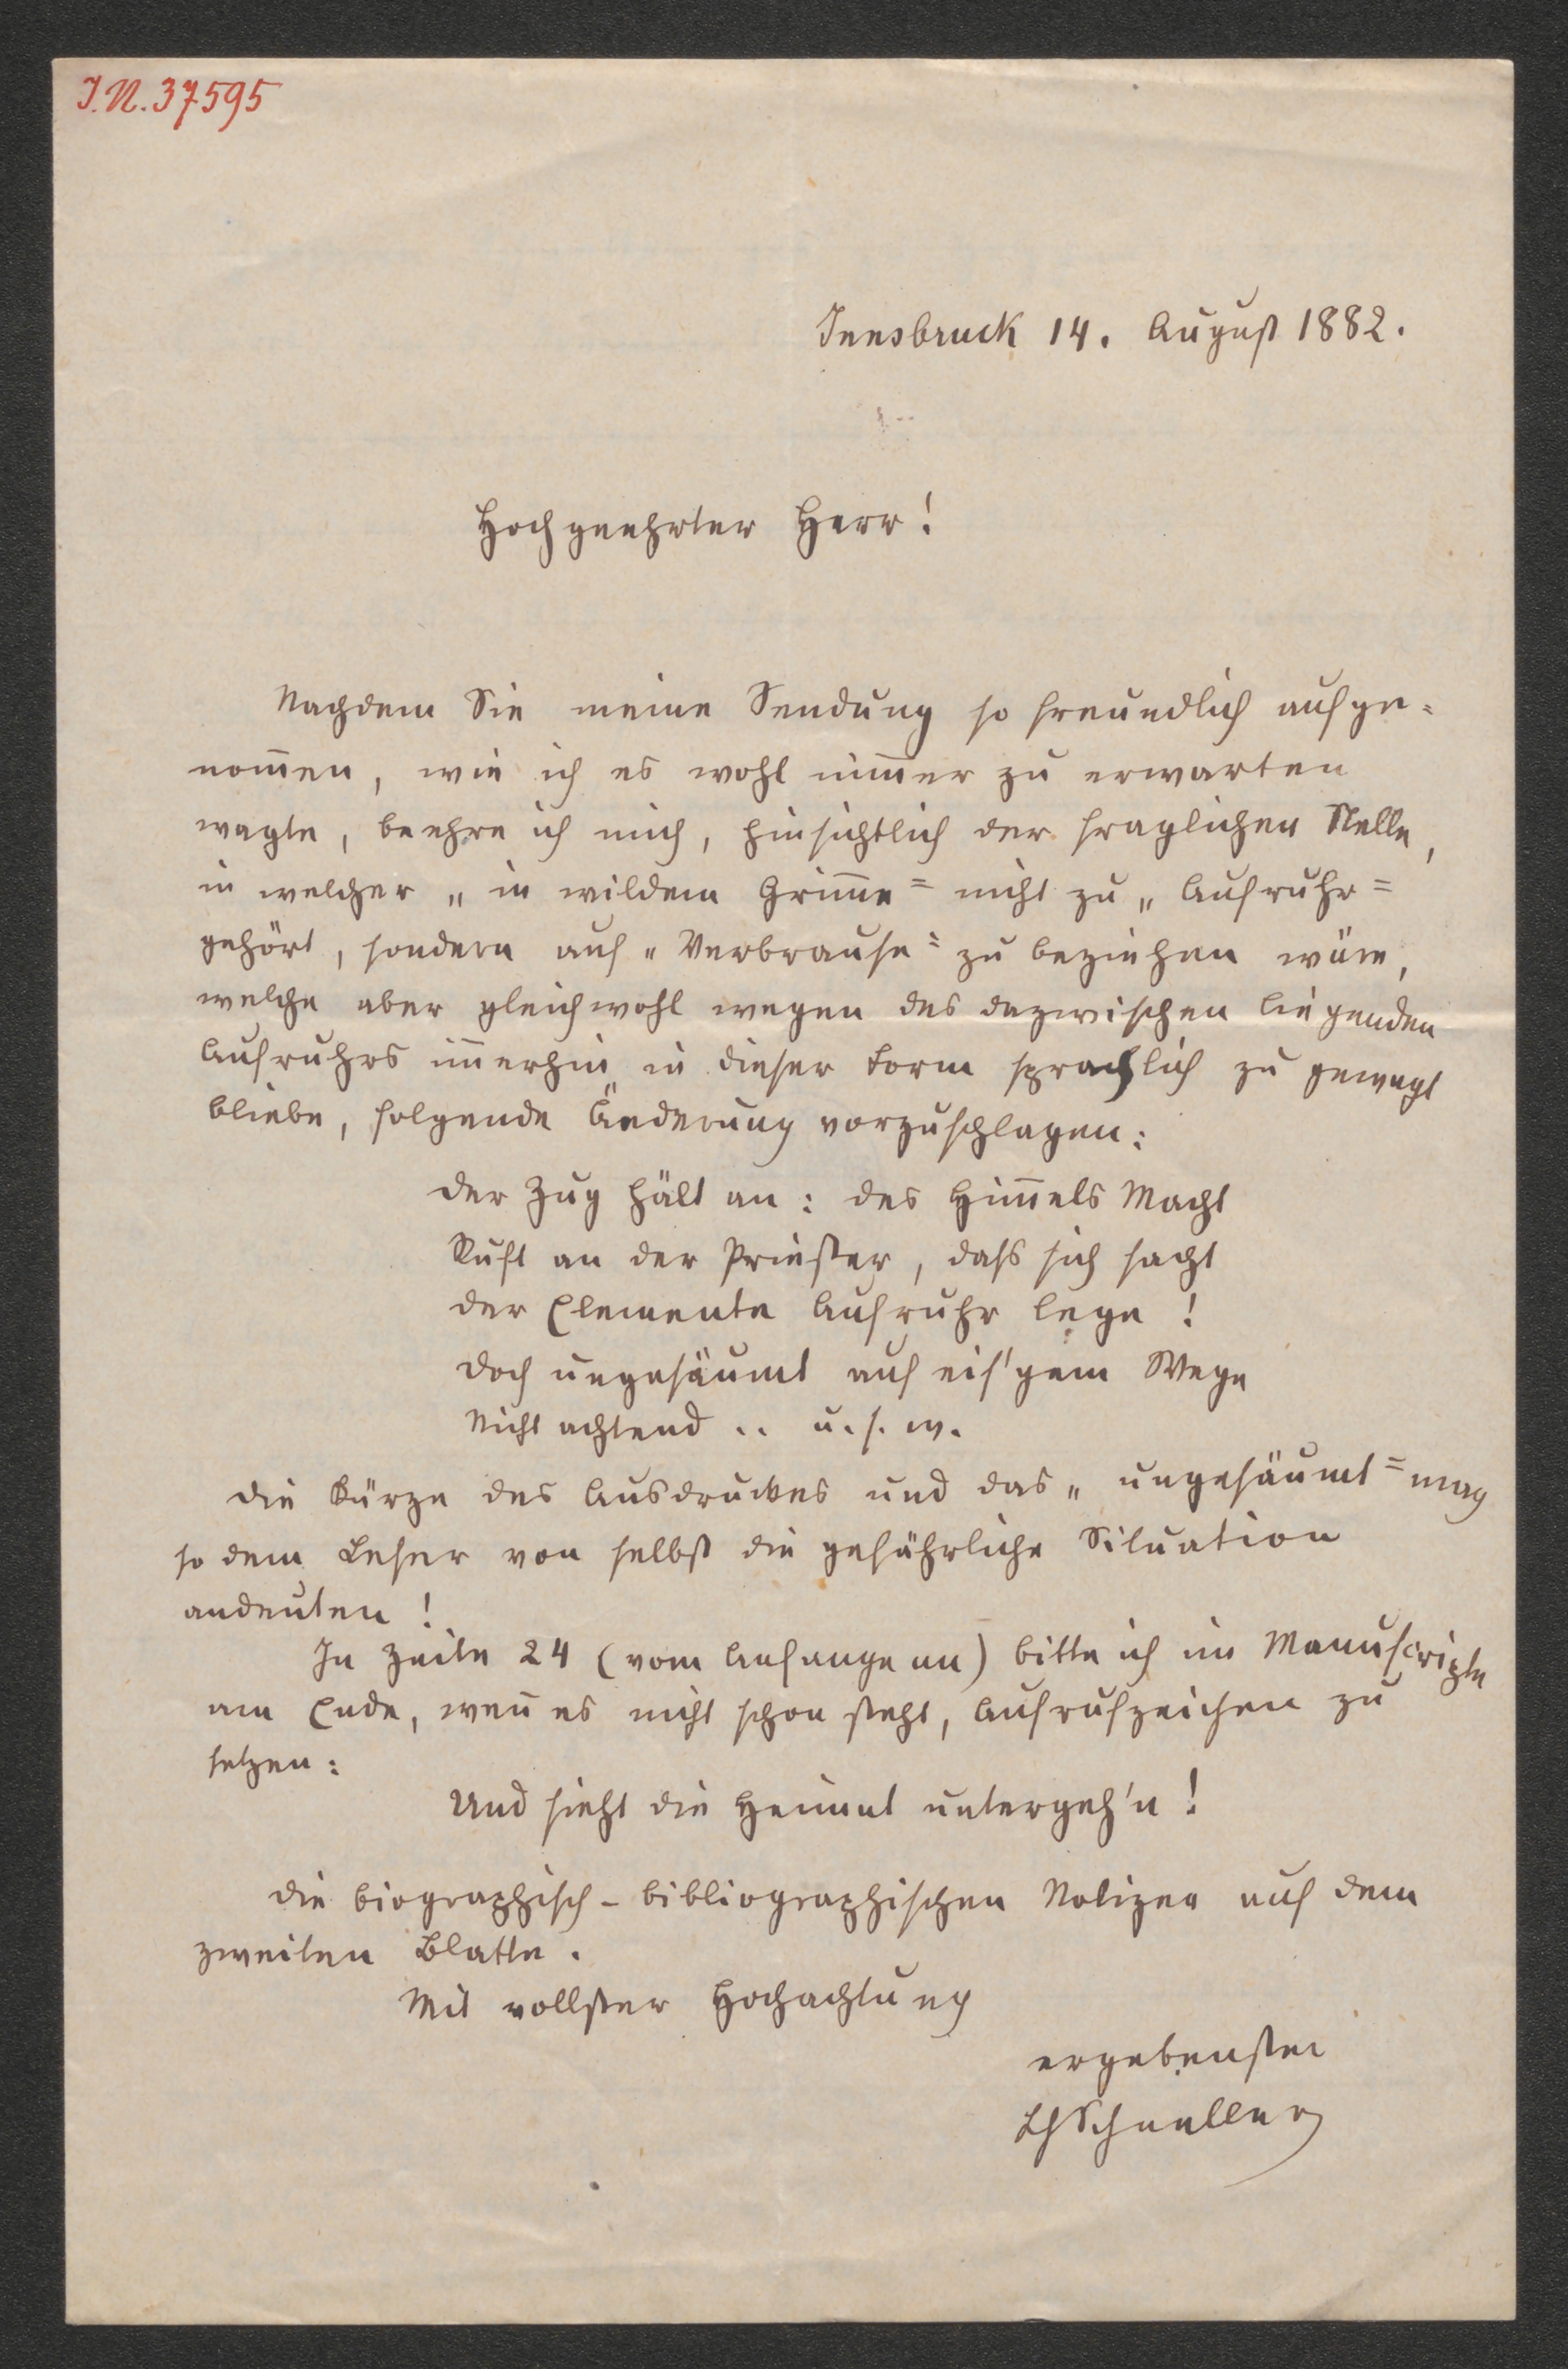 I.N. 37595
Innsbruck 14. August 1882.
Hochgeehrter Herr!
Nachdem Sie meine Sendung so freundlich aufge=
nom̅en, wie ich es wohl nim̅er zu erwarten
wagte, beehre ich mich, hinsichtlich der fraglichen Stelle,
in welcher „in wildem Grim̅e" nicht zu „Aufruhr"
gehört, sondern auf „Verbrause" zu beziehen wäre,
welche aber gleichwohl wegen des dazwischen liegenden
Aufruhrs im̅erhin in dieser Form sprachlich zu gewagt
bliebe, folgende Änderung vorzuschlagen:
Der Zug hält an: des Him̅els Macht
Ruft an der Priester, dass sich sacht
Der Elemente Aufruhr lege!
Doch ungesäumt auf eis'gem Wege
Nicht achtend .. u. s. w.
Die Kürze des Ausdruckes und das „ungesäumt" mag
so dem Leser von selbst die gefährliche Situation
andeuten!
In Zeile 24 (vom Anfange an) bitte ich im Manuscripte
am Ende, wen̅ es nicht schon steht, Aufrufzeichen zu
setzen:
Und sieht die Heimat untergeh'n!
Die biographisch-bibliographischen Notizen auf dem
zweiten Blatte.
Mit vollster Hochachtung
ergebenster
ChSchneller